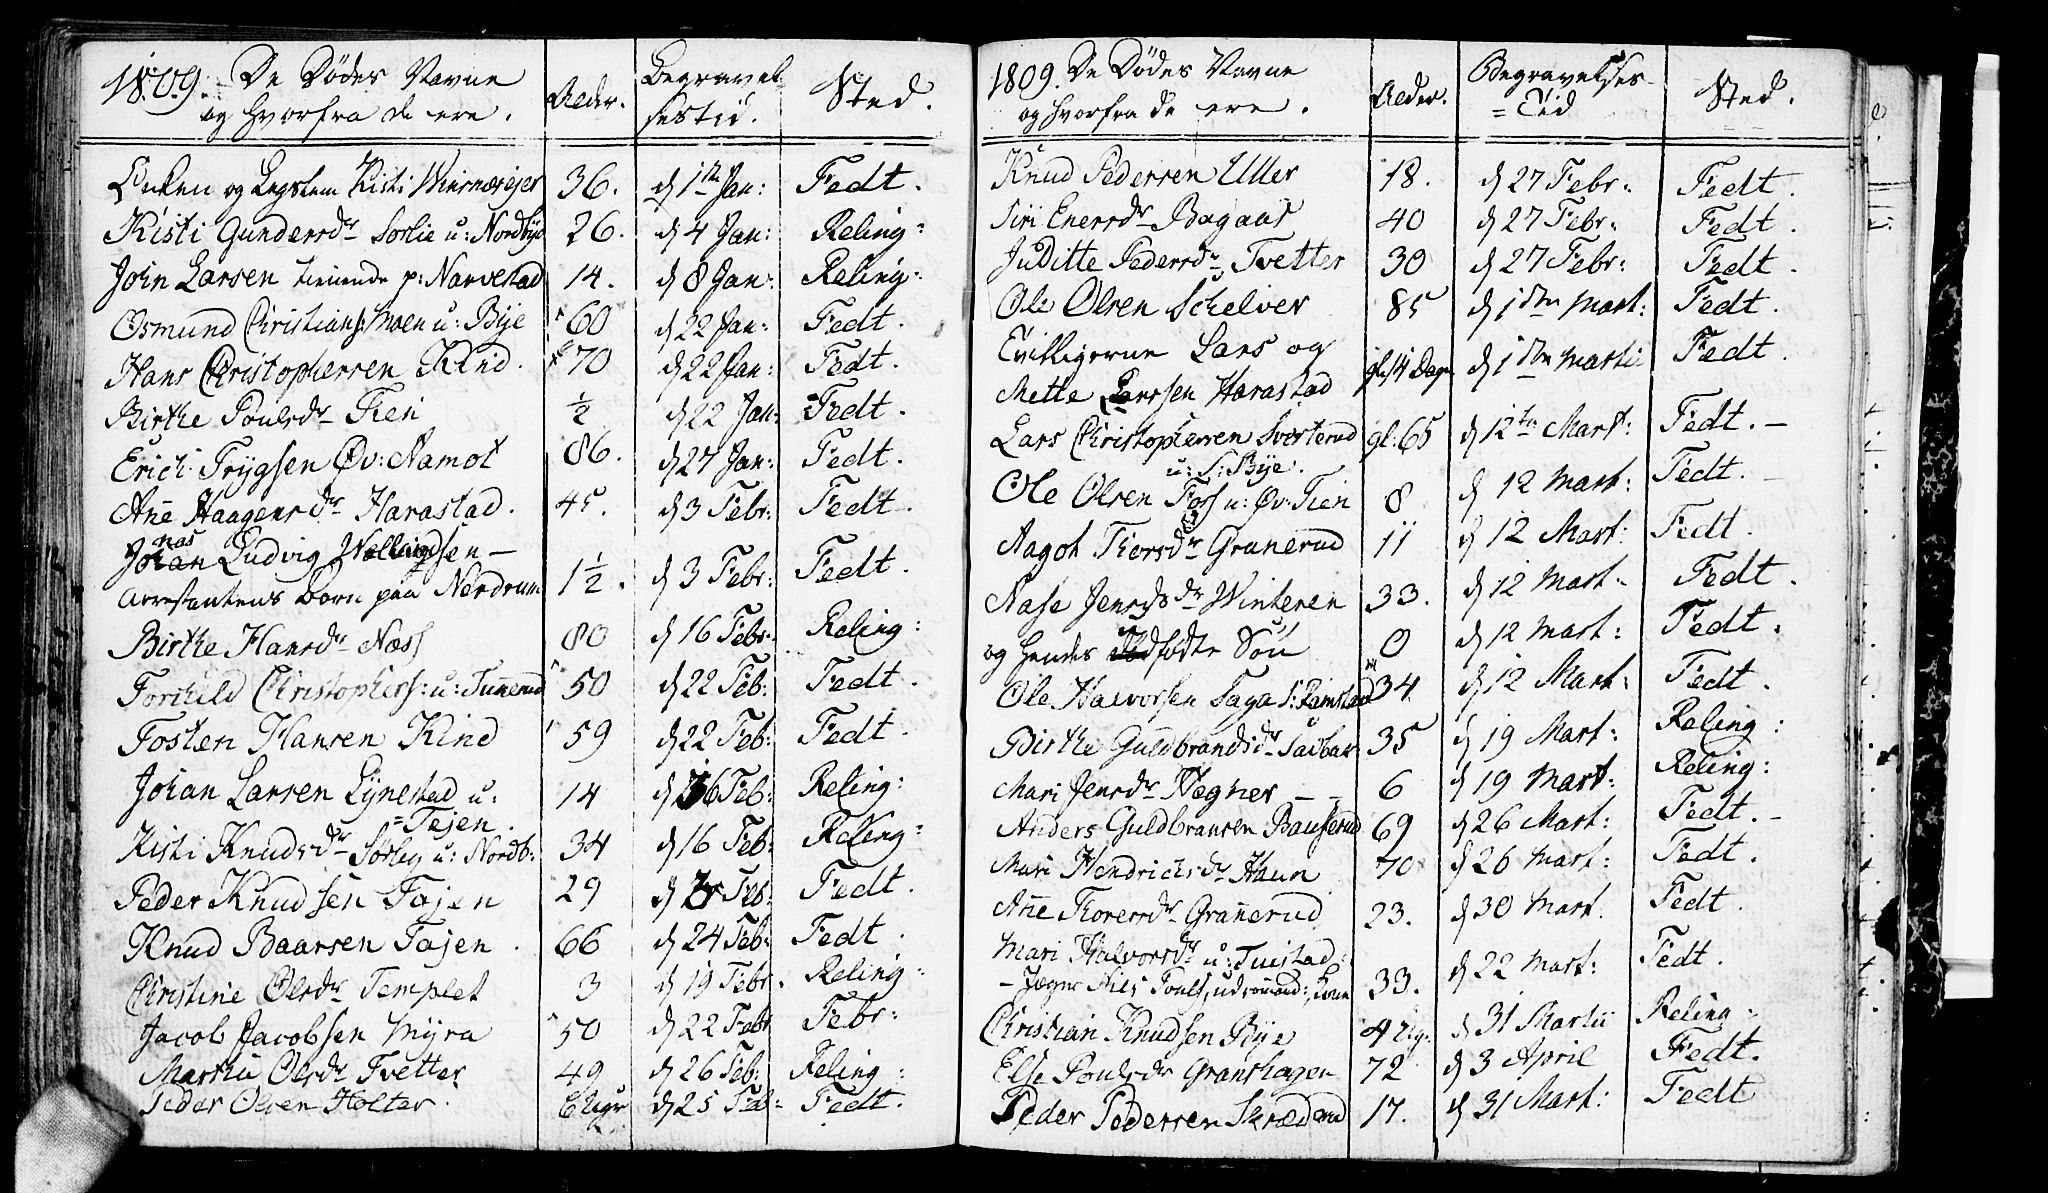 1809. De Dödes Navne
og hvorfra de ere.
Alder.
Begravel-
sestid.
Sted.
Enken og Legslem Kisti Wiernæseier 36. d 1ste Jan: Fedt.
Kisti Gundersdr Sörlie u: Nordbye 26. d 4 Jan: Reling:
John Larsen tienende p: Narvestad 14. d 8 Jan: Reling:
Osmund Christians: Moen u: Bye 60 d 22 Jan: Fedt.
Hans Christophersen Kind. 70 d 22 Jan: Fedt.
Birthe Poulsdr Fieri ½ d 22 Jan: Fedt.
Erich Trygsen Øv: Namot 86. d 27 Jan: Fedt.
Ane Haagensdr Harastad. 45. d 3 Febr: Fedt.
nas
Johan Ludvig Wellingsen –
Arrestantens barn paa Nordrum 1½. d 3 Febr: Fedt.
Birthe Hansdr Næss 80 d 16 Febr: Reling:
Torchild Christophers: u: Tunerud 50 d 22 Feb: Fedt.
Tosten Hansen Kind 59 d 22 Feb: Fedt.
Johan Larsen Lynestad u: 14 d 16 Feb: Reling:
= Tejen.
Kisti Knudsdr Sørby u: Nordb: 34 d 16 Feb: Reling:
Peder Knudsen Tajen 29 d Feb: Fedt.
Knud Baarsen Tajen. 66 d 24 Feb: Fedt.
Christine Olsdr Templet 3 d 19 Febr. Reling:
Jacob Jacobsen Myra 50 d 22 Febr Febr:
Marthe Olsdr Tvetter 49 d 26 Feb: Reling:
Peder Olsen Holter. 6 Uger d 25 Feb: Fedt.
1809. De Dödes Navne
og hvorfra de ere.
Alder.
Begravelses-
= Tid
Sted.
Knud Pedersen Uller 18. d 27 Febr: Fedt.
Siri Enersdr Bagaas 40 d 27 Febr: Fedt.
Juditte Pedersdr Tvetter 30 d 27 Febr: Fedt.
Ole Olsen Schelver 85 d 1ste Mart: Fedt.
Tvillingerne Lars og
Mette Larssen Harastad gl: 14 Dage d 1ste Martii Fedt.
Lars Christophersen Svarterud gl: 65 d 12te Mart: Fedt. –
u: S: Bye.
Ole Olsen Foss u: Øv: Fien 8 d 12 Mart: Fedt. –
Aagot Thorsdr Granerud 11 d 12 Mart: Fedt.
Aase Jensdr Winteren 33. d 12 Mart: Fedt.
og hendes dødfødte Søn 0 d 12 Mart: Fedt.
Ole Halvorsen Saga S: Ramstad 34 d 12 Mart: Fedt.
Birthe Guldbrandsdr 35 d 19 Mart: Reling:
Mari Jensdr Wegner – – 6 d 19 Mart: Reling:
Anders Guldbransen Bauserud 69 d 26 Mart: Fedt. –
Mari Hendrichsdr Haun 70 d 26 Mart: Fedt.
Ane Thoresdr Granerud 23. d 30 Mart. Fedt.
Mari Halvorsdr u: Tuistad
– Jæger Nils Pouls: udcomand: Kone 33. d 22 Mart: Fedt.
Christian Knudsen Bye 4 Ug. d 31 Martii Reling:
Else Poulsdr Granshagen 72 d 3 April Fedt.
Peder Pedersen Skræderud 17. d 31 Mart: Fedt